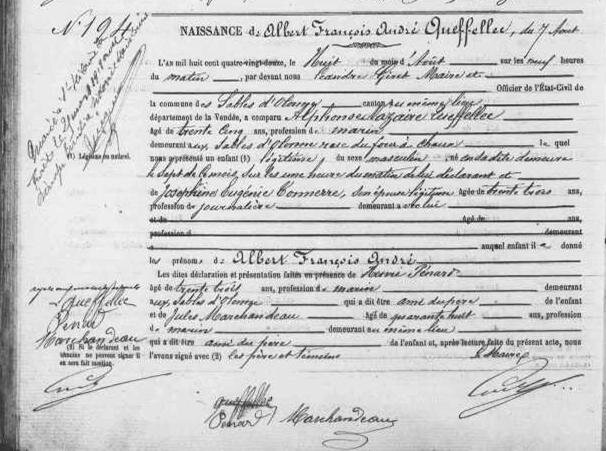 N. 194
NAISSANCE de Albert François André Queffellec, du 7 Août
L'AN mil huit cent quatre-vingt-douze, le Huit du mois d'Août sur les neuf heures
du matin, par devant nous Léandre Maire et
Officier de l'État-Civil de
la commune des Sables d'Olonne canton du même lieu
département de la Vendée, a comparu Alphonse Nazaire Queffellec
âgé de trente cinq ans, profession de marin
demeurant aux Sables d'Olonne rue du four à chaux le quel
nous a présenté un enfant (1) légitime du sexe masculin né en sa dite demeure
le sept de ce mois, sur les une heure du matin de lui déclarant et
de Joséphine Eugénie Connerre, son épouse légitime âgée de trente trois ans,
profession de journalière demeurant avec lui
et de âgé de ans,
profession de demeurant
auquel enfant il a donné
les prénoms de Albert François André
Les dites déclaration et présentation faites en présence de Henri Pénard
âgé de trente trois ans, profession de marin demeurant
aux Sables d'Olonne qui a dit être ami du père de l'enfant
et de Jules Marchandeau âgé de quarante huit ans, profession
de marin demeurant au même lieu
qui a dit être ami du père de l'enfant, et, après lecture faite du présent acte, nous
l'avons signé avec (2) les père et témoins
Le Maire
(1) Légitime ou naturel.
Queffellec
Penard
Marchandeau
(2) Si le déclarant et les
témoins ne peuvent signer il
en sera fait mention.
Queffellec
Penard
Marchandeau